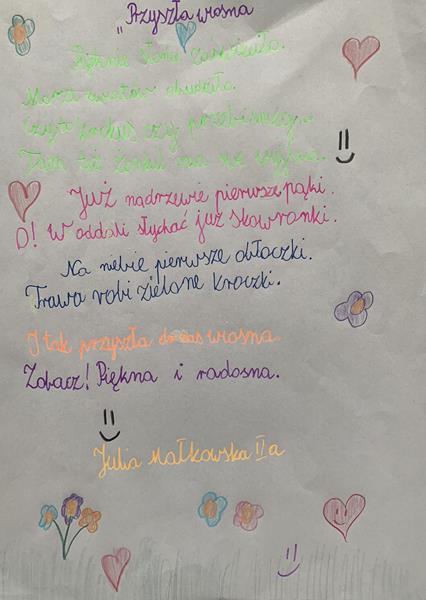 „Przyszła wiosna
Pięknie słońce zaświeciło.
Moza kwiatów obudziło.
Czy to krokus czy przebiśnieg..
Tam też żonkil ma się wyjśna.
Już nadrzewie pierwsze pąki.
O! W oddali słychać już skowronki.
Na niebie pierwsze obłoczki.
Trawa robi zielone kroczki.
I tak przyszła do nas wiosna.
Zobacz! Piękna i radosna.
Julia Małkowska II a